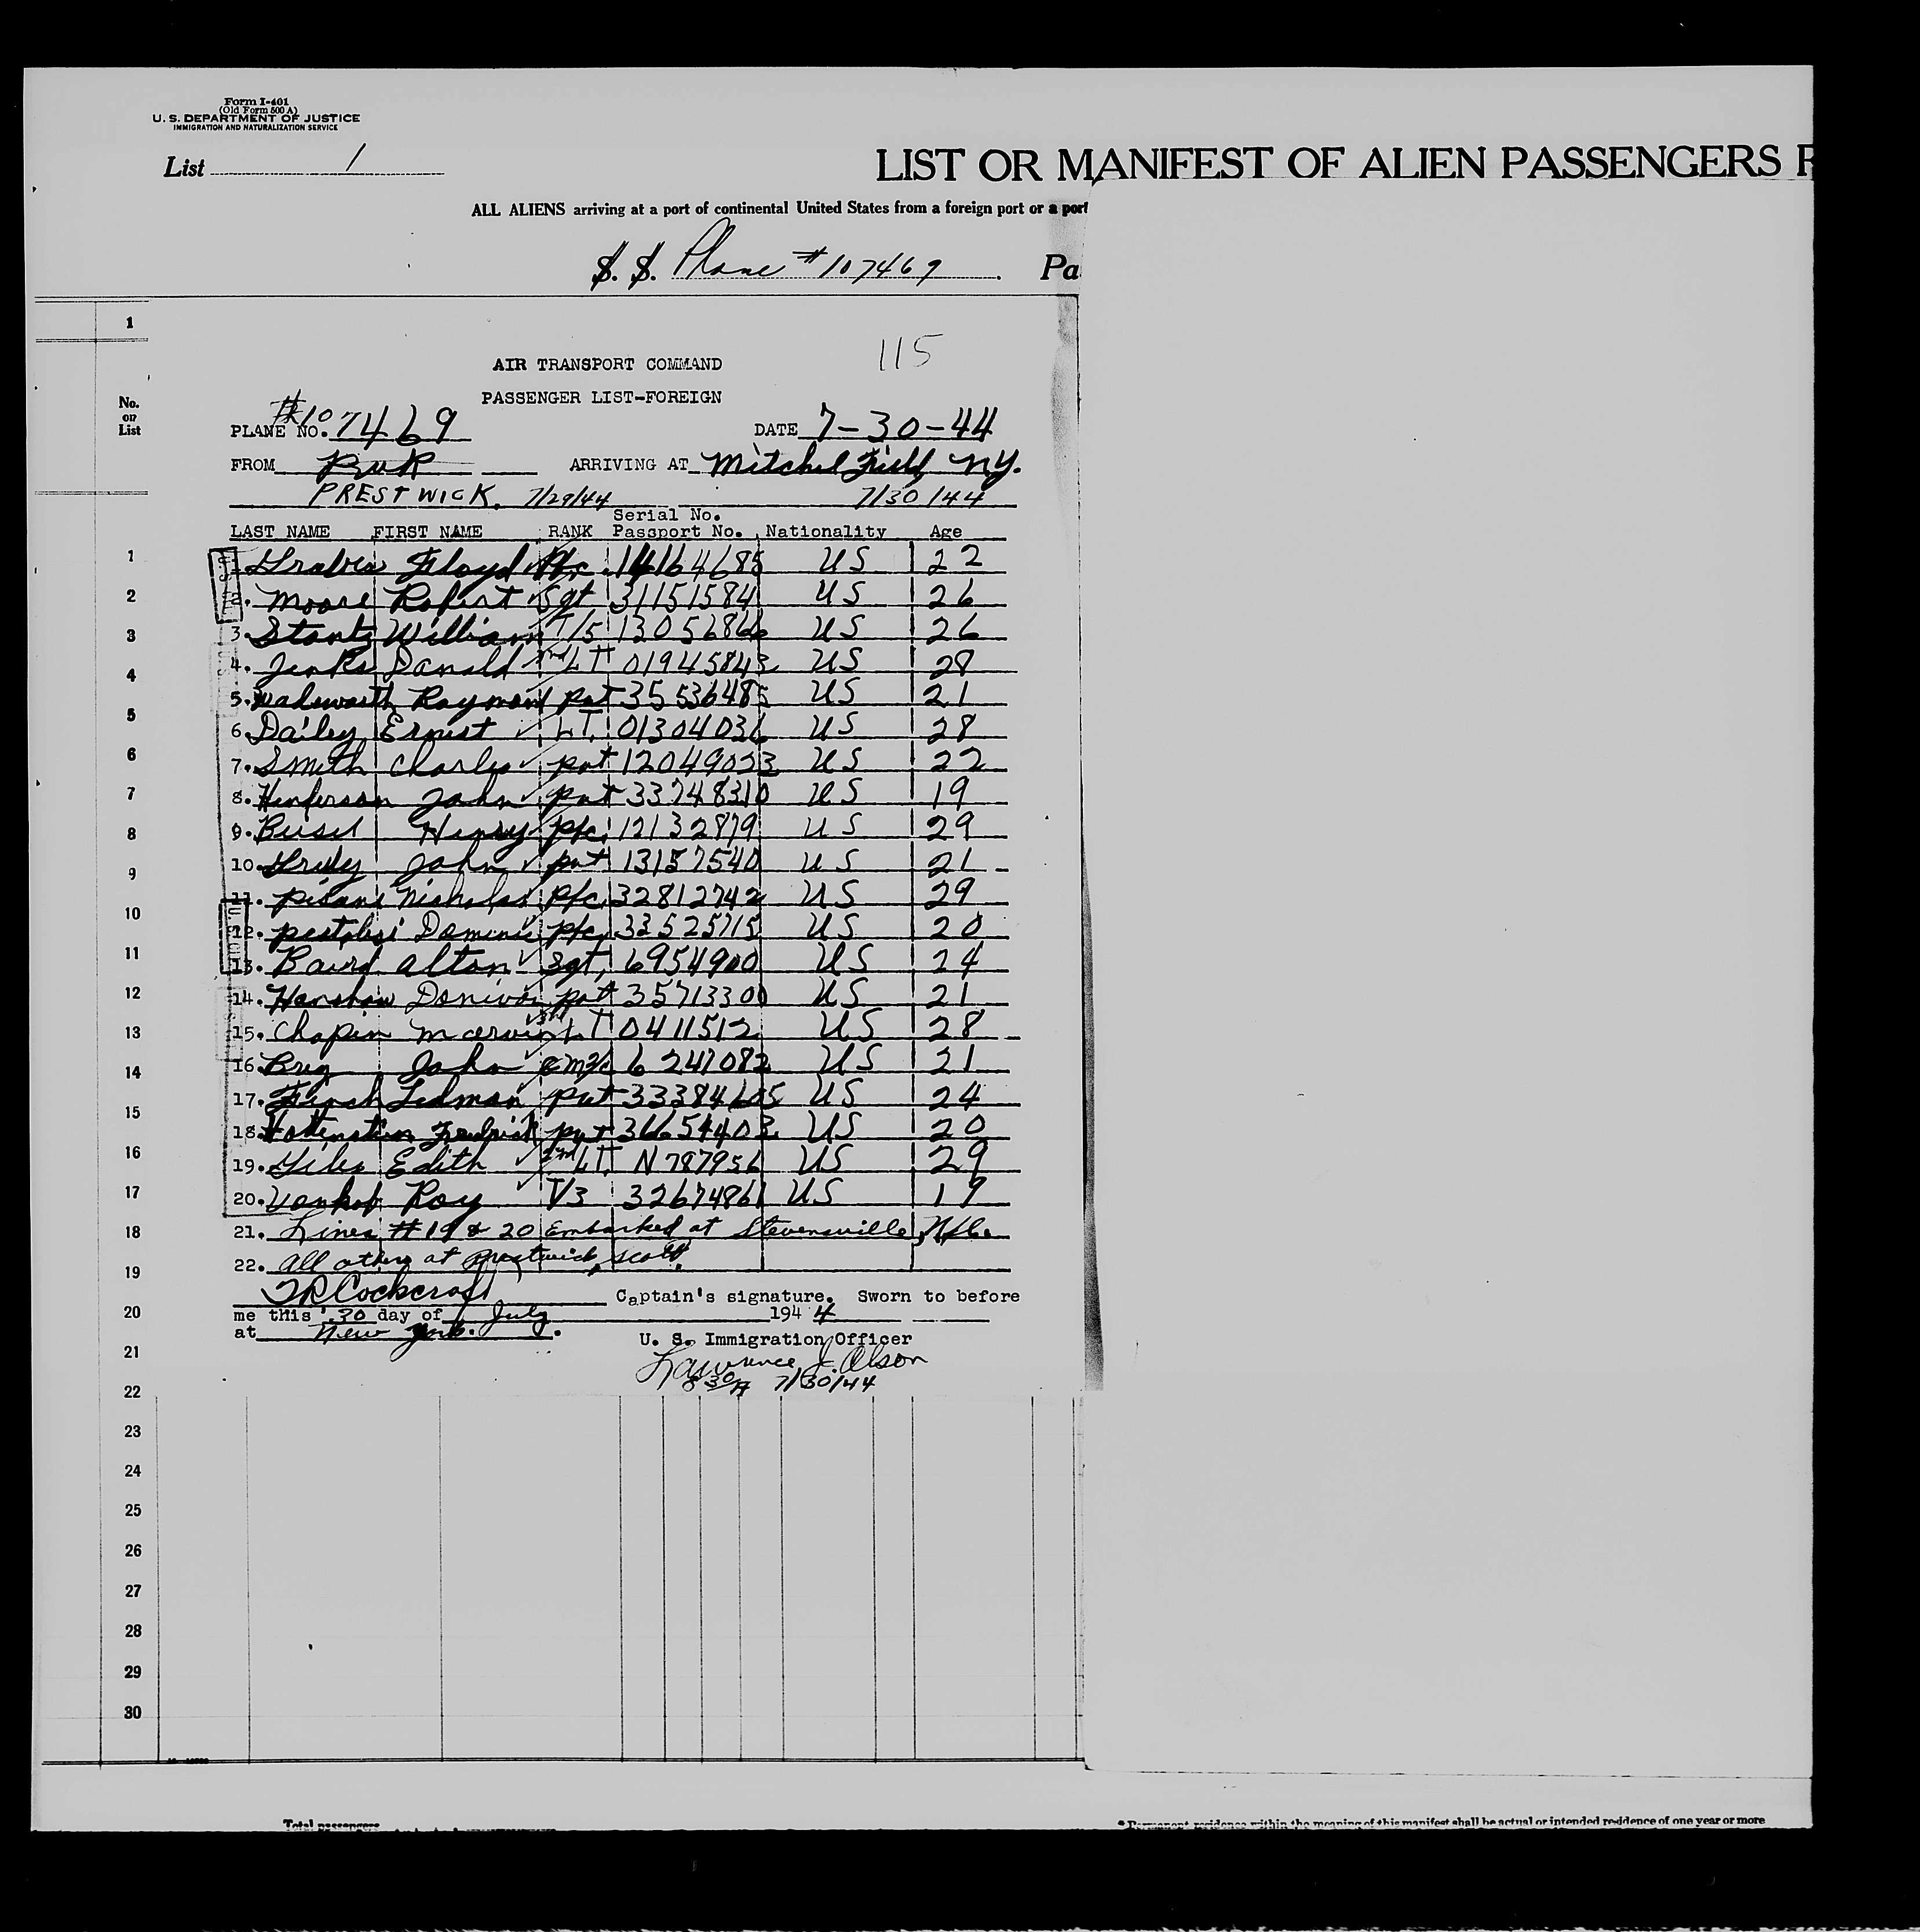 Form I-401
(Old Form 500 A)
U. S. DEPARTMENT OF JUSTICE
IMMIGRATION AND NATURALIZATION SERVICE
List 1
LIST OR MANIFEST OF ALIEN PASSENGERS F
ALL ALIENS arriving at a port of continental United States from a foreign port or a port
S. S. Plane #107469. Pa
1
115
AIR TRANSPORT COMMAND
PASSENGER LIST-FOREIGN
No. on List
PLANE NO. #107469 DATE 7-30-44
FROM ARRIVING AT Mitchel Field, NY.
PRESTWICK. 7/29/44 7/30/44
Serial No.
LAST NAME FIRST NAME RANK Passport No. Nationality Age
1. Floyd Pfc 14164685 US 22
2. Moore Robert Sgt 31151584 US 26
3. Stantz William T/5 13056866 US 26
4. Jenks Donald 2nd LT 01945843 US 28
5. Wadsworth Raymond pvt 35536485 US 21
6. Dailey Ernest LT. 01304036 US 28
7. Smith Charles pvt 12049023 US 22
8. Henderson John pvt 33748310 US 19
9. Henry pfc. 12132879 US 29
10. John pvt 13157540 US 21
11. Pisani Nicholas Pfc. 32812742 US 29
12. Dominic pfc. 33525715 US 20
13. Baird Alton Sgt. 6954900 US 24
14. Henshaw Donivon pvt 35713300 US 21
15. Chapin Marvin LT 0411512 US 28
16. John 6241082 US 21
17. Finch Ledman Pvt 33384605 US 24
18. Hottenstein Fredrick pvt 36654403 US 20
19. Giles Edith 2nd LT. N787956 US 29
20. Roy T/3 32674861 US 19
21. Lines #19 & 20 Embarked at Stevensville, Nfl.
22. All others at Prestwick, Scott.
TR Cockcroft Captain's signature. Sworn to before
me this 30 day of July 1944
at New York.
U. S. Immigration Officer
Lawrence J. Olson
830A 7/30/44
1
2
3
4
5
6
7
8
9
10
11
12
13
14
15
16
17
18
19
20
21
22
23
24
25
26
27
28
29
30
Total passengers
* Permanent residence within the meaning of this manifest shall be actual or intended residence of one year or more